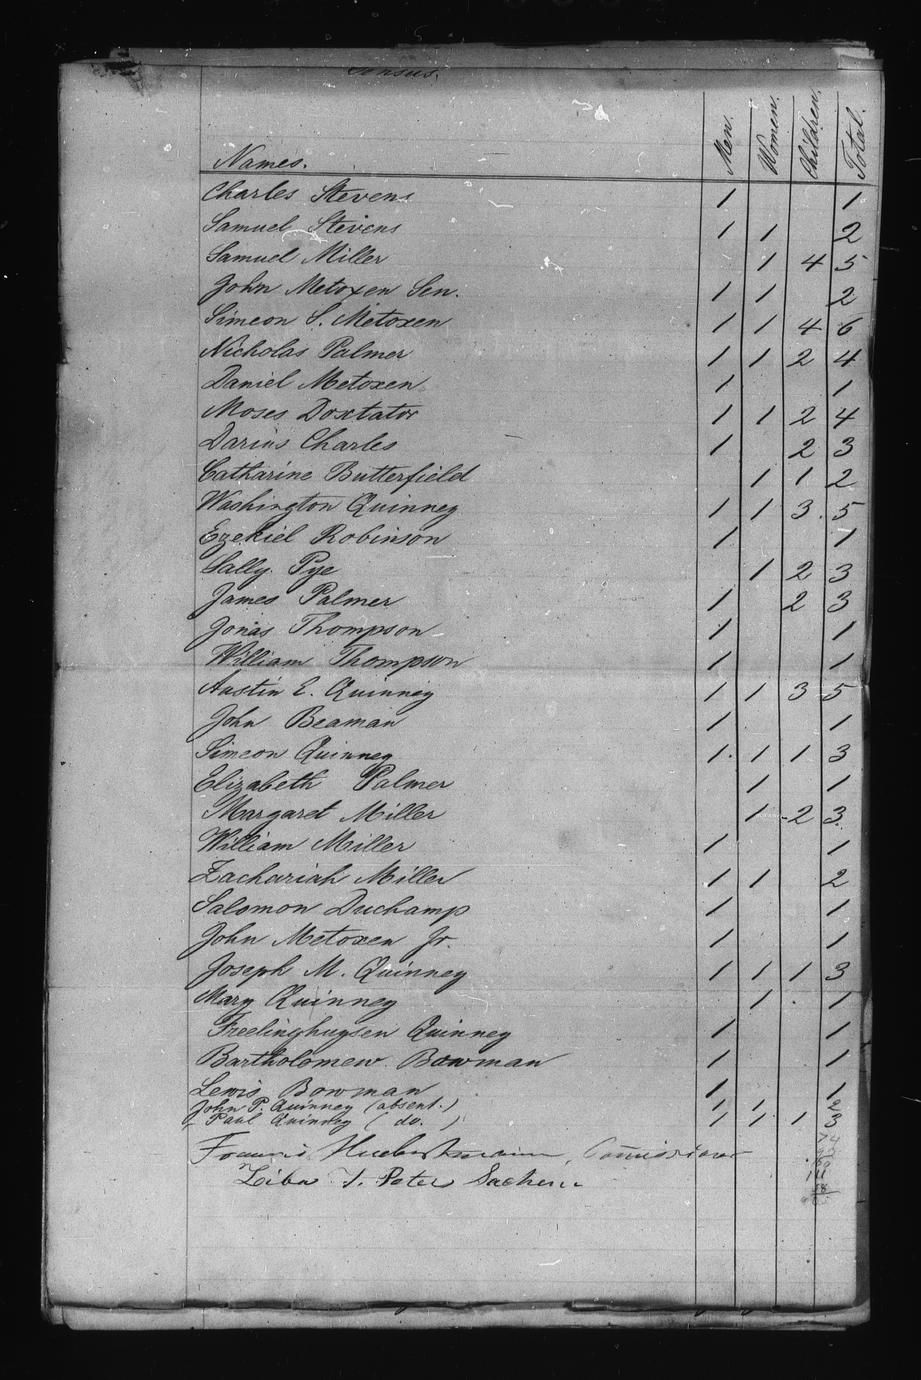 Census.
Names. Men. Women. Children. Total.
Charles Stevens 1 1
Samuel Stevens 1 1 2
Samuel Miller 1 4 5
John Metoxen Sen. 1 1 2
Simeon S. Metoxen 1 1 4 6
Nicholas Palmer 1 1 2 4
Daniel Metoxen 1 1
Moses Doxtator 1 1 2 4
Darius Charles 1 2 3
Catharine Butterfield 1 1 2
Washington Quinney 1 1 3 5
Ezekiel Robinson 1 1
Sally Pye 1 2 3
James Palmer 1 2 3
Jonas Thompson 1 1
William Thompson 1 1
Austin E. Quinney 1 1 3 5
John Beaman 1 1
Simeon Quinney 1 1 1 3
Elizabeth Palmer 1 1
Margaret Miller 1 2 3
William Miller 1 1
Zachariah Miller 1 1 2
Salomon Duchamp 1 1
John Metoxen Jr. 1 1
Joseph M. Quinney 1 1 1 3
Mary Quinney 1 1
Freelinghuysen Quinney 1 1
Bartholomew Bowman 1 1
Lewis Bowman 1 1
John P. Quinney (absent.) 1 1 2
Paul Quinney ( do. ) 1 1 1 3
Francis Huebschmann, Commissioner
Ziba T. Peter Sachem